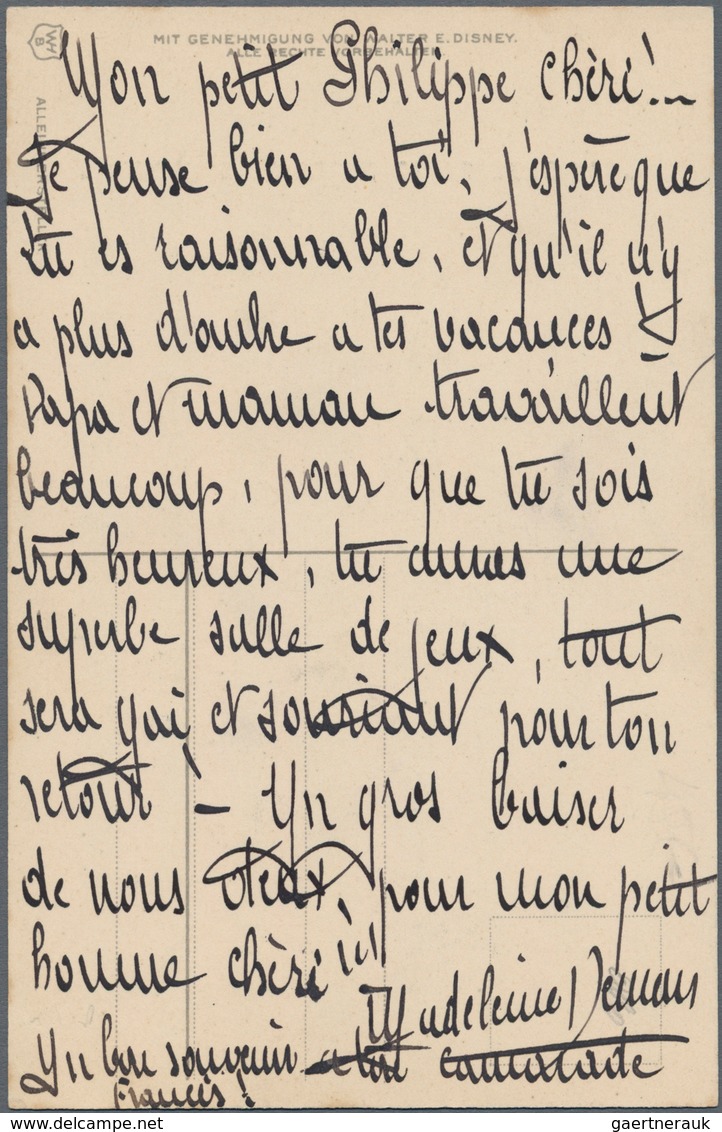 MIT GENEHMIGUNG VON WALTER E. DISNEY.
ALLE RECHTE VORBEHALTEN
WH
B
Mon petit Philippe chéri!..
Je pense bien a toi, j'espère que
tu es raisonnable, et qu'il n'y
a plus d'autre a tes vacances
Papa et maman travaillent
beaucoup, pour que tu sois
très heureux, tu auras une
superbe salle de jeux, tout
sera gai et souriant pour ton
retour! – Un gros baiser
de nous deux, pour mon petit
homme chéri!!!
Madeleine
Un bon souvenir a ton camarade
Francis.
gaertnerauk